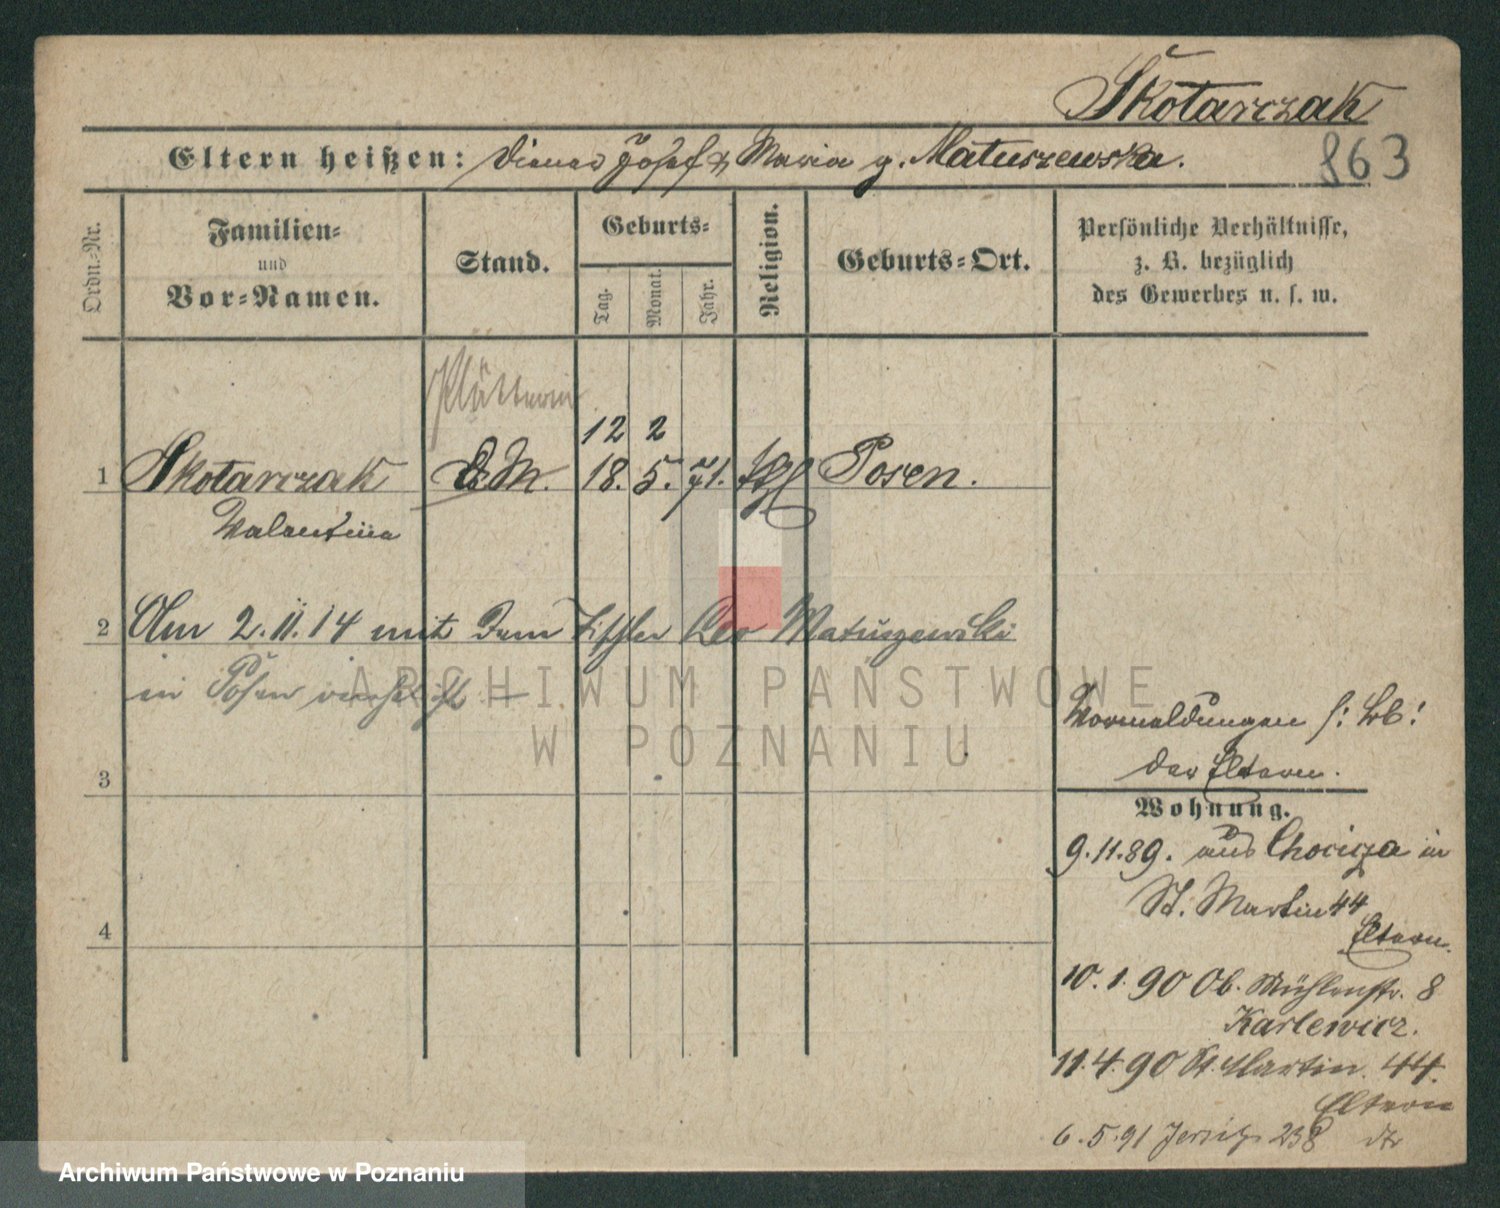 Skotarczak
863
Eltern heißen: Diener Josef & Maria g. Matuszewska.
Ordn.-Nr.
Familien-
und
Vor-Namen.
Stand.
Geburts-
Tag.
Monat.
Jahr.
Religion.
Geburts-Ort.
Persönliche Verhältnisse,
z. B. bezüglich
des Gewerbes u. s. w.
Plätterin
12 2
1 Skotarczak D.M. 18. 5. 71. kgl Posen.
Valentina
2 Am 2.11.14 mit dem Tischler Leo Matuszewski
in Posen verheir.
3
4
Vormeldungen s: Kb:
der Eltern.
Wohnung.
9.11.89. aus Chocicza in
St. Martin 44
Eltern.
10.1.90 Ob. Mühlenstr. 8
Karlewicz.
11.4.90 St. Martin. 44.
Eltern
6.5.91 Jersitz 238 dto
ARCHIWUM PAŃSTWOWE
W POZNANIU
Archiwum Państwowe w Poznaniu